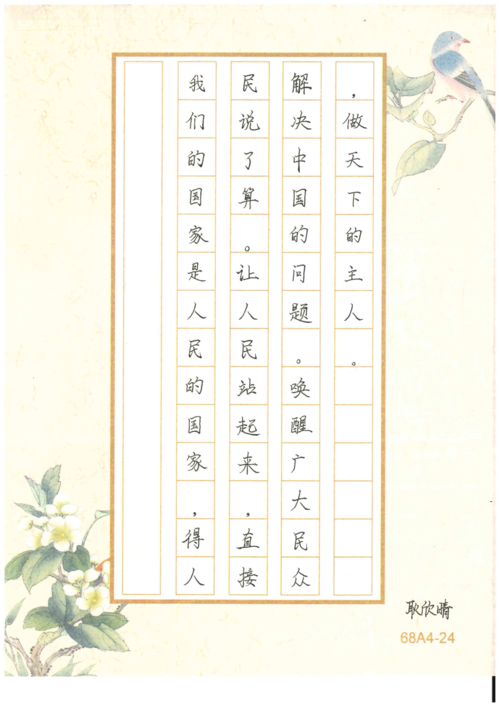 我们的国家是人民的国家，得人
民说了算。让人民站起来，直接
解决中国的问题。唤醒广大民众
，做天下的主人。
耿欣晴
68A4-24